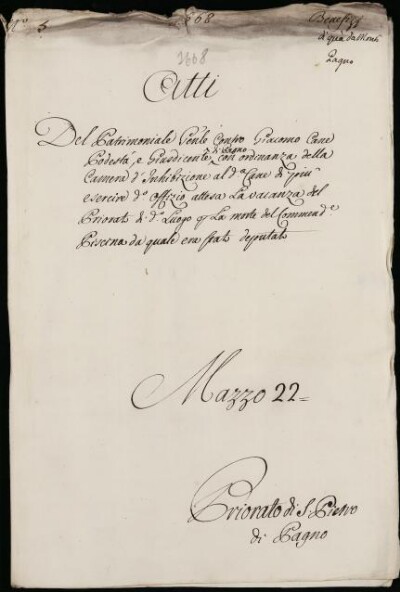 N.º 5
1668
Benefizj
di qua da Monti
Pagno
1668
Atti
Del Patrimoniale Gen'le Contro Giacomo Cane
Podestà, e Giusdicente di Pagno con ordinanza della
Camera d'Inhibizione al d.º Cane di più
esercire d.º offizio attesa La vacanza del
Priorato di d.º Luogo per La morte del Commend.e
da quale era stato deputato
Mazzo 22=
Priorato di S. Pietro
di Pagno